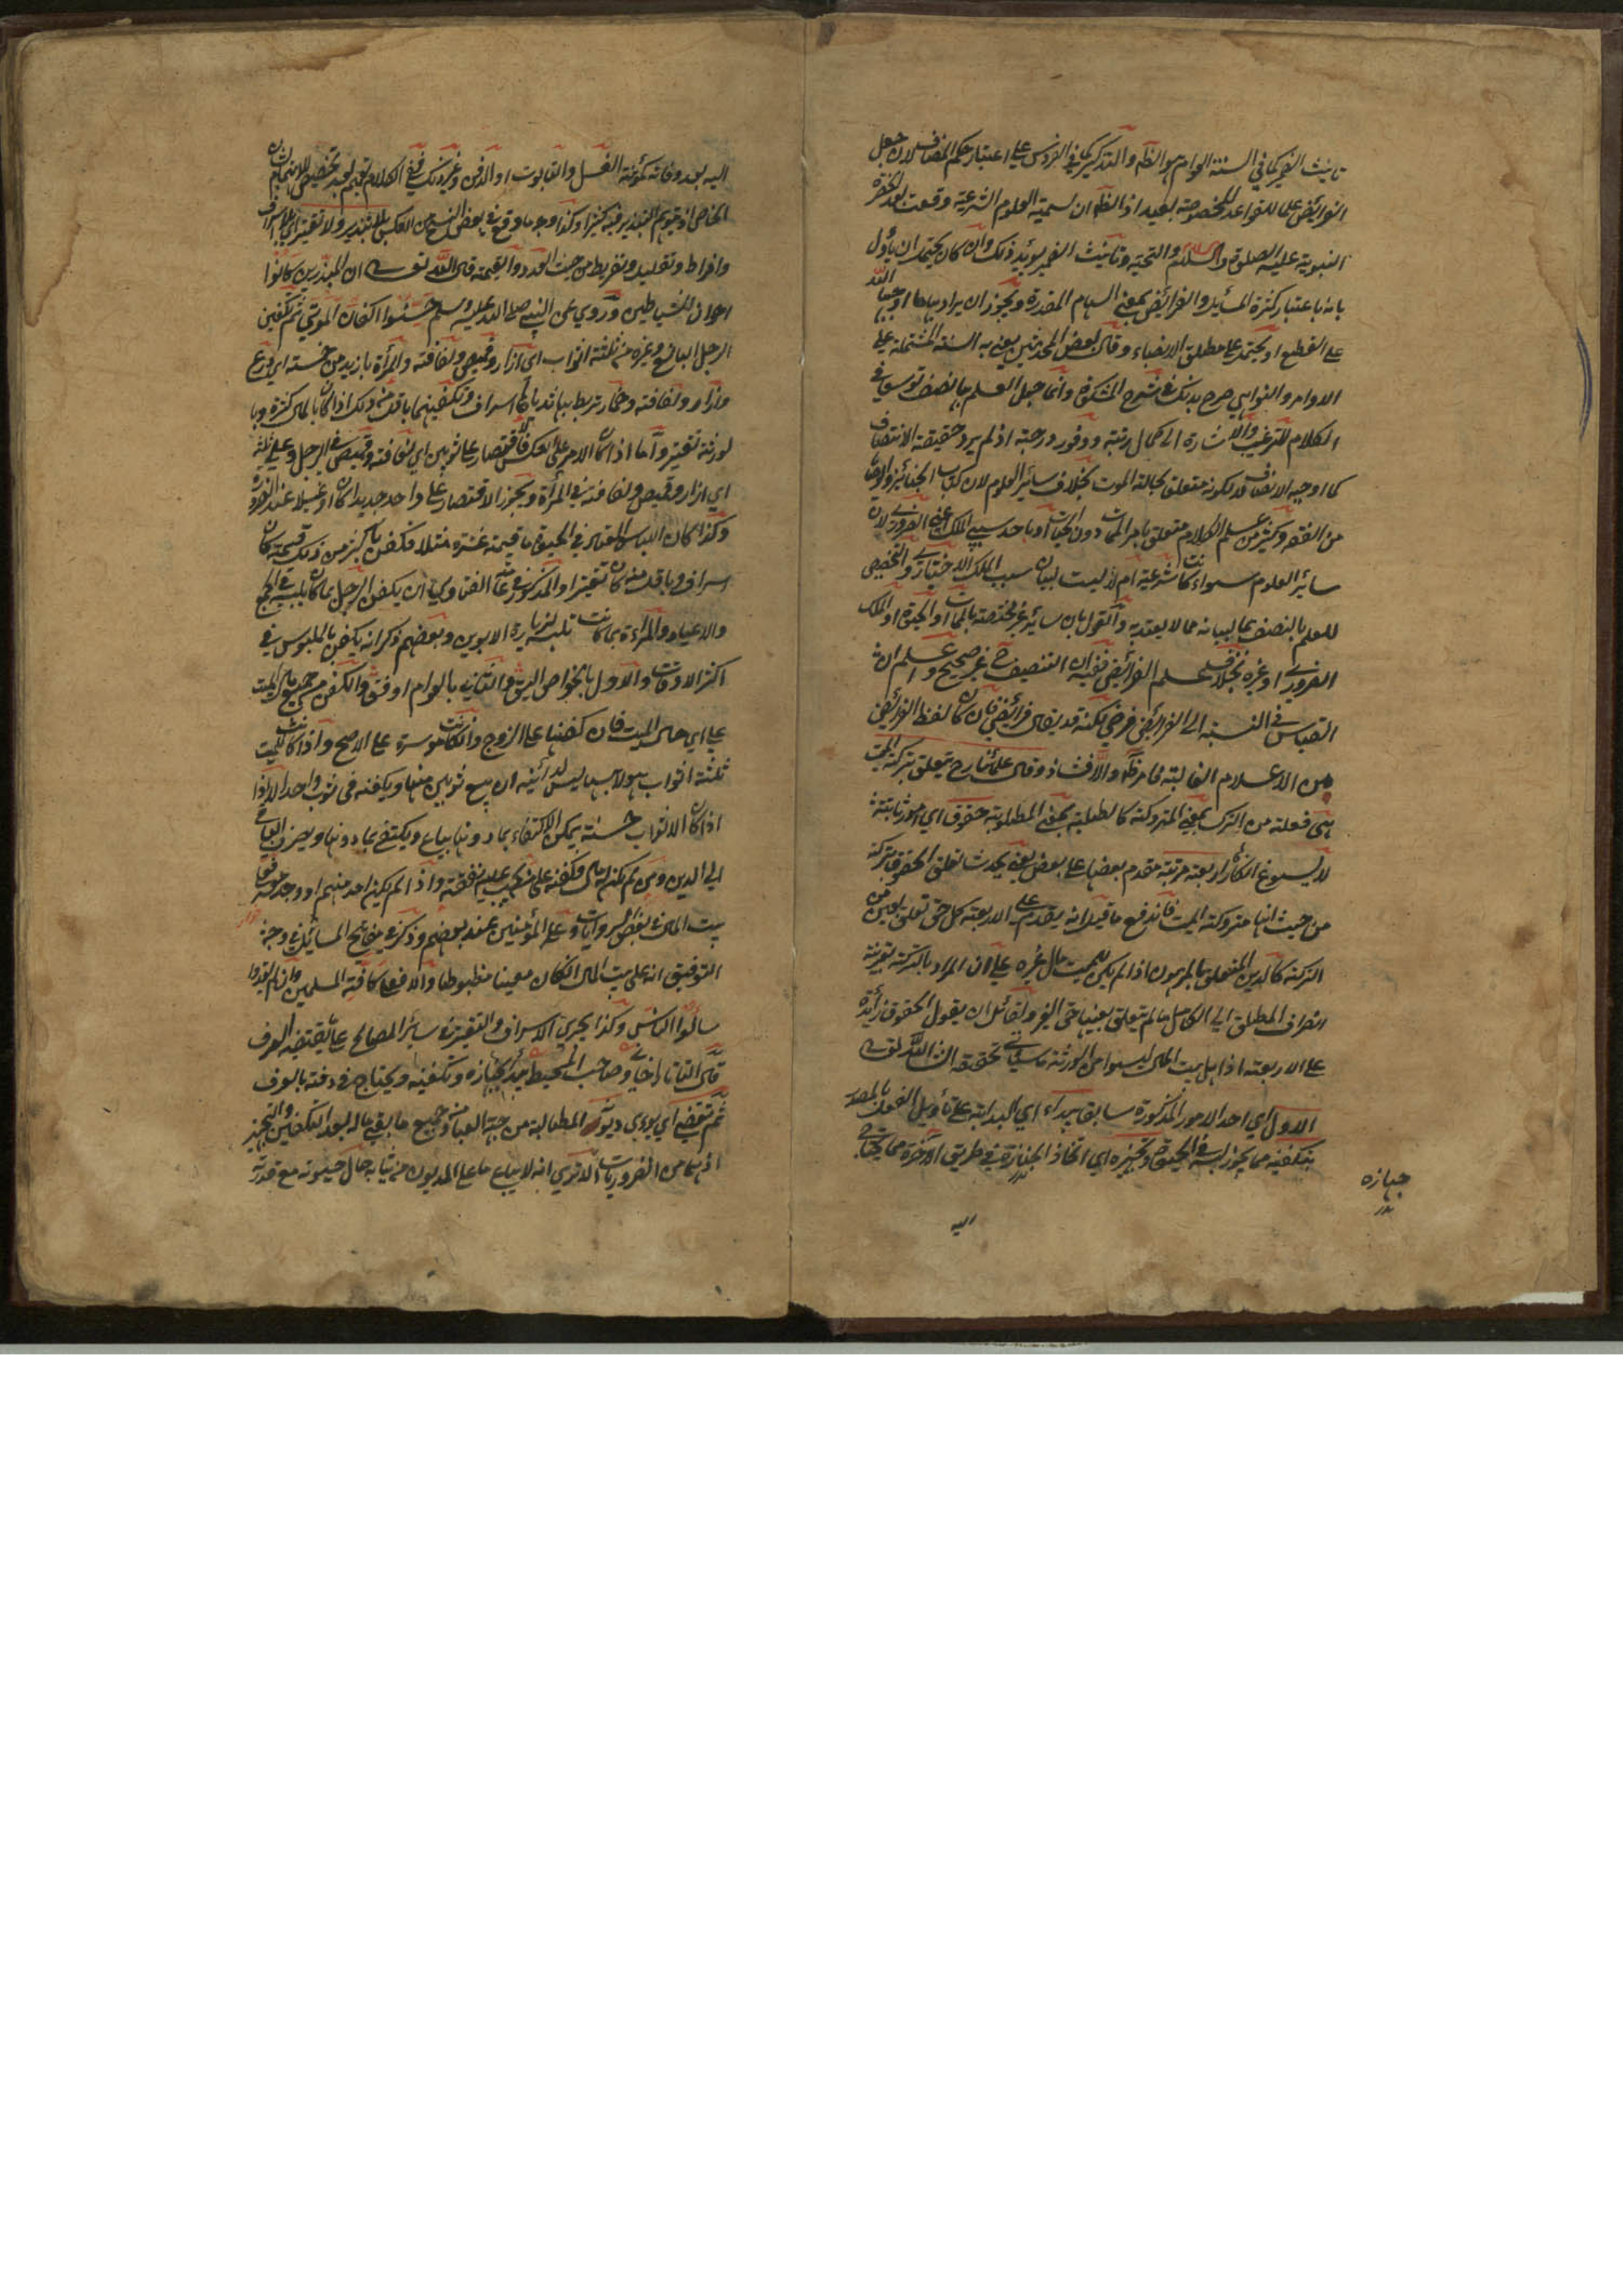 تانيث الضمير كما في السنة العوام هو الظ والتذكير كما في الفردوس على اعتبار حكم المضاف لان جعل
الفرائض علما للقواعد المخصوصة بعيد اذ الظ ان تسمية العلوم الشرعية وقعت بعد الحضرة
النبوية عليه الصلوة والسلام والتحية وتانيث الضمير يؤيد ذلك وان كان يحتمل ان يأول
بانه باعتبار كثرة المسائل والفرائض بمعنى السهام المقدرة ويجوز ان يراد بها ما اوجبها الله
على القطع او يحتمل على مطلق الانصباء وقال بعض المحدثين يعني به السنة المشتملة على
الاوامر والنواهي صرح بذلك في شرح المشكوة وانما جعل العلم بها نصف توسعا في
الكلام للترغيب والاشارة الى كمال رتبته ووفور درجته اذ لم يرد حقيقة الانتصاف
كما اوجبه الانصاف لكونه متعلق بحالة الموت بخلاف سائر العلوم لان كتاب الجنائز والوصايا
من الفقه وكثير من علم الكلام متعلق بامر الممات دون الحيات او باحد سببي الملك اعني الضروري لان
سائر العلوم سواء كانت شرعية ام لا ليست لبيان سبب الملك الاختياري والتخصيص
للعلم بالنصف بما لبيانه مما لا يعتد به والقول بان سائره غير مختصة بالممات او الحيوة او الملك
الضروري او غيره بخلاف علم الفرائض ففيه ان التنصيف ح غير صحيح واعلم ان
القياس في النسبة الى الفرائض فرضي لكنه قد يقال فرائضي فان كان لفظ الفرائض
من الاعلام الغالبة فامر ظ والا فشاذ وقال علمائنا رح تتعلق بتركة الميت
هي فعلة من الترك بمعنى المتروكة كالطلبة بمعنى المطلوبة حقوق اي امور ثابتة
لا يسوغ انكارها اربعة مرتبة مقدم بعضها على بعض يعني يحدث تعلق الحقوق بتركته
من حيث انها متروكة الميت فاندفع ما قيل انه يقدم على الاربعة كل حق تعلق بعين من
التركة كالدين المتعلق بالمرهون اذا لم يكن للميت مال غيره على ان المراد بالتركة بقرينة
انصراف المطلق الى الكامل ما لم يتعلق بعينها حق الغير ولقائل ان يقول الحقوق زائدة
على الاربعة اذ اهل بيت المال ليسوا من الورثة ما سيأتي تحقيقه ان شاء الله تعالى
الاول اي احد الامور المذكورة سابقا يبداء اي البداية على تأويل الفعل بالمصدر
بتكفينه مما يجوز لبسه في الحيوة وتجهيزه اي اتخاذ الجنازة في طريق الآخرة مما يحتاج
جهازه
اليه
اليه بعد وفاته كمؤنة الغسل والتابوت او الدفن وغير ذلك ففي الكلام تعميم بعد تخصيص للاهتمام بشأن
الخاص اذ يتوهم التبذير فيه كثيرا وكذا وجه ما وقع في بعض النسخ من العكس بلا تبذير ولا تقتير اي بلا اسراف
وافراط وتقليل وتفريط من حيث العدد والقيمة قال الله تعالى ان المبذرين كانوا
اخوان الشياطين وروي عن النبي صلى الله عليه وسلم حسنوا اكفان الموتى ثم تكفين
الرجل البالغ وغيره من ثلثة اثواب اي ازار وقميص ولفافة والمرأة بازيد من خمسة اي درع
وازار ولفافة وخمار تربط بها ثدياها اسراف وتكفينهما باقل من ذلك اذا كان بالمال كثرة وبا
لورثة تقتير واما اذا كان الامر على العكس فالاقتصار على ثوبين اي لفافة وقميص في الرجل وعلى ثلثة
اي ازار وقميص ولفافة في المرأة ويجوز الاقتصار على واحد جديدا كان او غسيلا عند الضرورة
وكذا كان اللباس المعتاد في الحيوة ما قيمته عشرة مثلا فكفن باكثر من ذلك قيمة كان
اسراف وباقل منه كان تقتيرا والمذكور في عامة الفتاوي ان يكفن الرجل بما كان يلبسه في الجمع
والاعياد والمرأة بما كانت تلبسه لزيارة الابوين وبعضهم ذكر انه يكفن بالملبوس في
اكثر الاوقات والاول بالخواص اليق والثاني بالعوام اوفق والكفن من جميع مال الميت
على اي حال الميت فان كفنها على الزوج وان كانت موسرة على الاصح واذا كانت للميت
ثلثة اثواب هو لابسها ليس لدائنه ان يبيع ثوبين منها ويكفنه في ثوب واحد الا اذا
اذا كان الاثواب حسنة يمكن الاكتفاء بما دونها يباع ويكتفى بما دونها ويصرف الباقي
الى الدين ومن لم يكن له مال فكفنه على من يجب عليه نفقته واذا لم يكن احد منهم او وجد معسرا فعلى
بيت المال في بعض الروايات وعلى المؤمنين عند بعضهم وذكر في مفاتيح المسائل في وجه
التوفيق انه على بيت المال ان كان معينا مضبوطا والا فعلى كافة المسلمين وان لم يقدروا
سألوا الناس وكذا يجري الاسراف والتقتير في سائر المصالح على ما يقتضيه العرف
قال التاتارخاني وصاحب المحيط يبدأ بجهازه وتكفينه ويحتاج في دفنه بالعرف
ثم تقضى اي يؤدى ديونه المطالبة من جهة العباد من جميع ما بقي ماله بعد التكفين والتجهيز
اذ هما من الضروريات الا ترى انه لا يباع ما على المديون من ثيابه حال حيوته مع قدرته